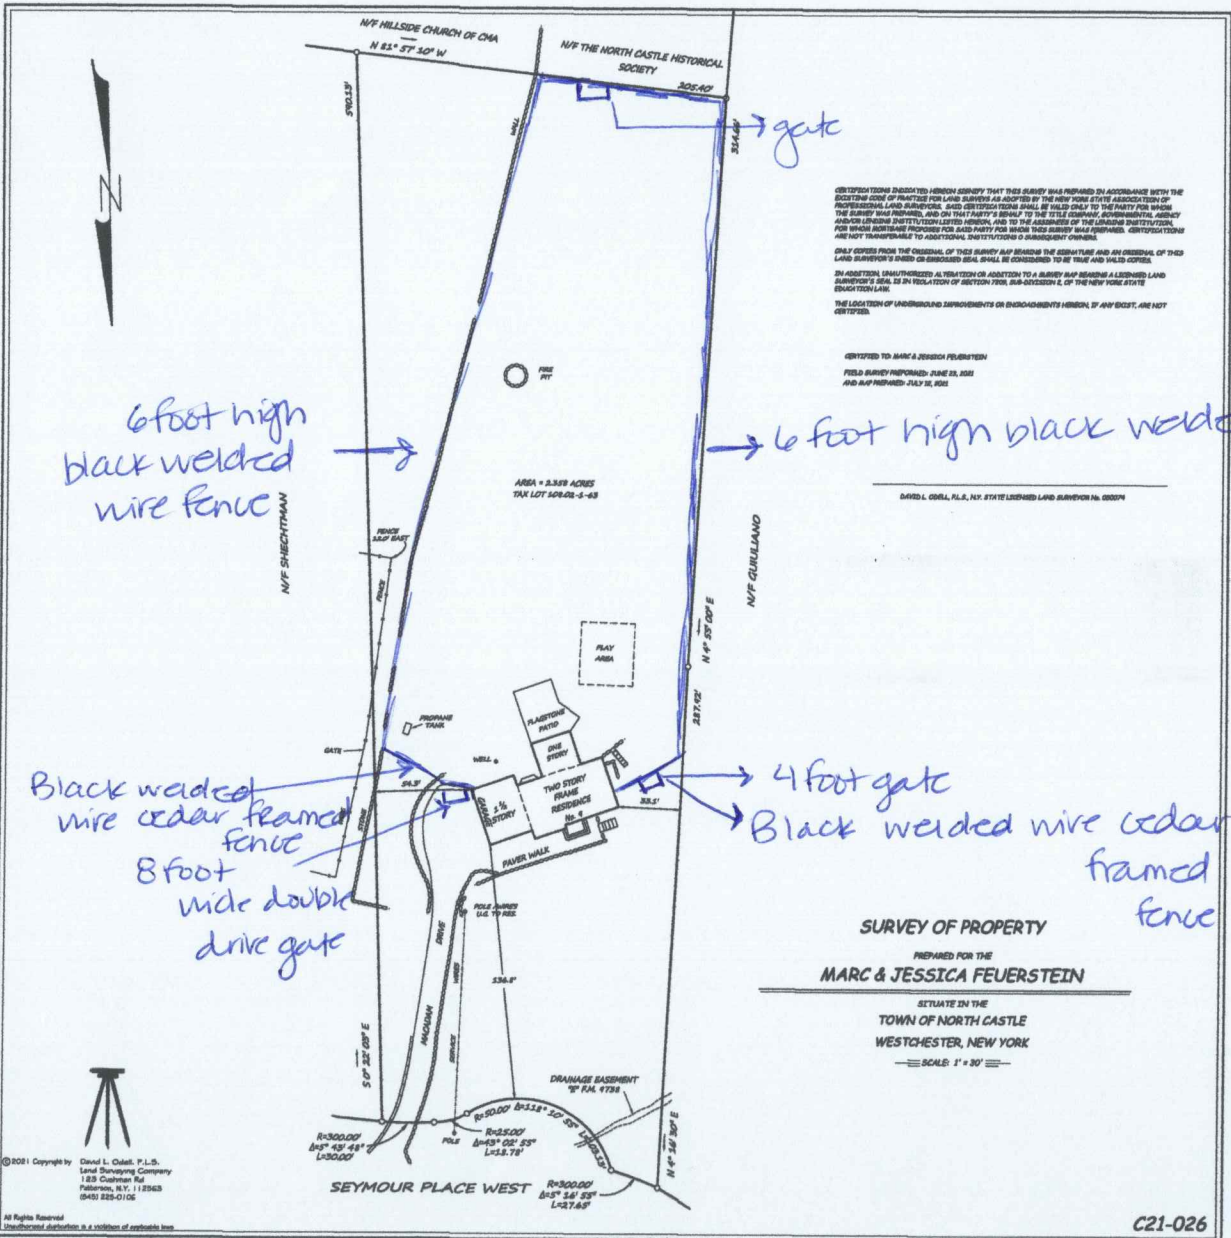 N/F HILLSIDE CHURCH OF CMA
N 81° 57' 10" W
N/F THE NORTH CASTLE HISTORICAL
SOCIETY
205.40'
590.13'
WALL
314.66'
gate
N
CERTIFICATIONS INDICATED HEREON SIGNIFY THAT THIS SURVEY WAS PREPARED IN ACCORDANCE WITH THE
EXISTING CODE OF PRACTICE FOR LAND SURVEYS AS ADOPTED BY THE NEW YORK STATE ASSOCIATION OF
PROFESSIONAL LAND SURVEYORS. SAID CERTIFICATIONS SHALL BE VALID ONLY TO THE PARTY FOR WHOM
THE SURVEY WAS PREPARED, AND ON THAT PARTY'S BEHALF TO THE TITLE COMPANY, GOVERNMENTAL AGENCY
AND/OR LENDING INSTITUTION LISTED HEREON, AND TO THE ASSIGNEES OF THE LENDING INSTITUTION,
FOR WHOM MORTGAGE PROPOSES FOR SAID PARTY FOR WHOM THIS SURVEY WAS PREPARED. CERTIFICATIONS
ARE NOT TRANSFERABLE TO ADDITIONAL INSTITUTIONS O SUBSEQUENT OWNERS.
ONLY COPIES FROM THE ORIGINAL OF THIS SURVEY MAP BEARING THE SIGNATURE AND AN ORIGINAL OF THIS
LAND SURVEYOR'S INKED OR EMBOSSED SEAL SHALL BE CONSIDERED TO BE TRUE AND VALID COPIES.
IN ADDITION, UNAUTHORIZED ALTERATION OR ADDITION TO A SURVEY MAP BEARING A LICENSED LAND
SURVEYOR'S SEAL IS IN VIOLATION OF SECTION 7209, SUB-DIVISION 2, OF THE NEW YORK STATE
EDUCATION LAW.
THE LOCATION OF UNDERGROUND IMPROVEMENTS OR ENCROACHMENTS HEREON, IF ANY EXIST, ARE NOT
CERTIFIED.
CERTIFIED TO: MARC & JESSICA FEUERSTEIN
FIELD SURVEY PREFORMED: JUNE 23, 2021
AND MAP PREPARED: JULY 12, 2021
FIRE
PIT
6 foot high
black welded
wire fence
6 foot high black welde
AREA = 2.358 ACRES
TAX LOT 108.02-1-63
DAVID L. ODELL, P.L.S., N.Y. STATE LICENSED LAND SURVEYOR No.
N/F SHECHTMAN
FENCE
12.0' EAST
FENCE
N/F GUIULIANO
N 4° 55' 00" E
PLAY
AREA
287.42'
FLAGSTONE
PATIO
PROPANE
TANK
GATE
WELL
ONE
STORY
54.3'
TWO STORY
FRAME
RESIDENCE
No. 9
GARAGE
1 ½
STORY
33.1'
4 foot gate
Black welded
wire cedar framed
fence
Black welded wire cedar
framed
fence
STONE
8 foot
wide double
drive gate
PAVER WALK
POLE & WIRES
U.G. TO RES.
DRIVE
MACADAM
WIRES
SERVICE
136.8'
SURVEY OF PROPERTY
PREPARED FOR THE
MARC & JESSICA FEUERSTEIN
SITUATE IN THE
TOWN OF NORTH CASTLE
WESTCHESTER, NEW YORK
SCALE: 1" = 30'
S 0° 22' 05" E
DRAINAGE EASEMENT
"B" F.M. 9738
N 4° 16' 30" E
R=50.00' Δ=118° 20' 55"
R=300.00'
Δ=5° 43' 48"
L=30.00'
POLE
R=25.00'
Δ=43° 02' 55"
L=18.78'
R=300.00'
Δ=5° 16' 55"
L=27.65'
SEYMOUR PLACE WEST
©2021 Copyright by David L. Odell, P.L.S.
Land Surveying Company
125 Cushman Rd
Patterson, N.Y. 112563
(845) 225-0106
All Rights Reserved
Unauthorized duplication is a violation of applicable laws
C21-026